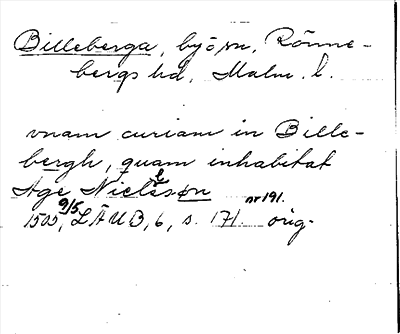 Billeberga, by o sn, Rönne-
bergs hd, Malm. l.
vnam curiam in Bille-
bergh, quam inhabitat
Age Nielsson nr 191.
1505 9/5, LÄUB, 6, s. 171. orig.